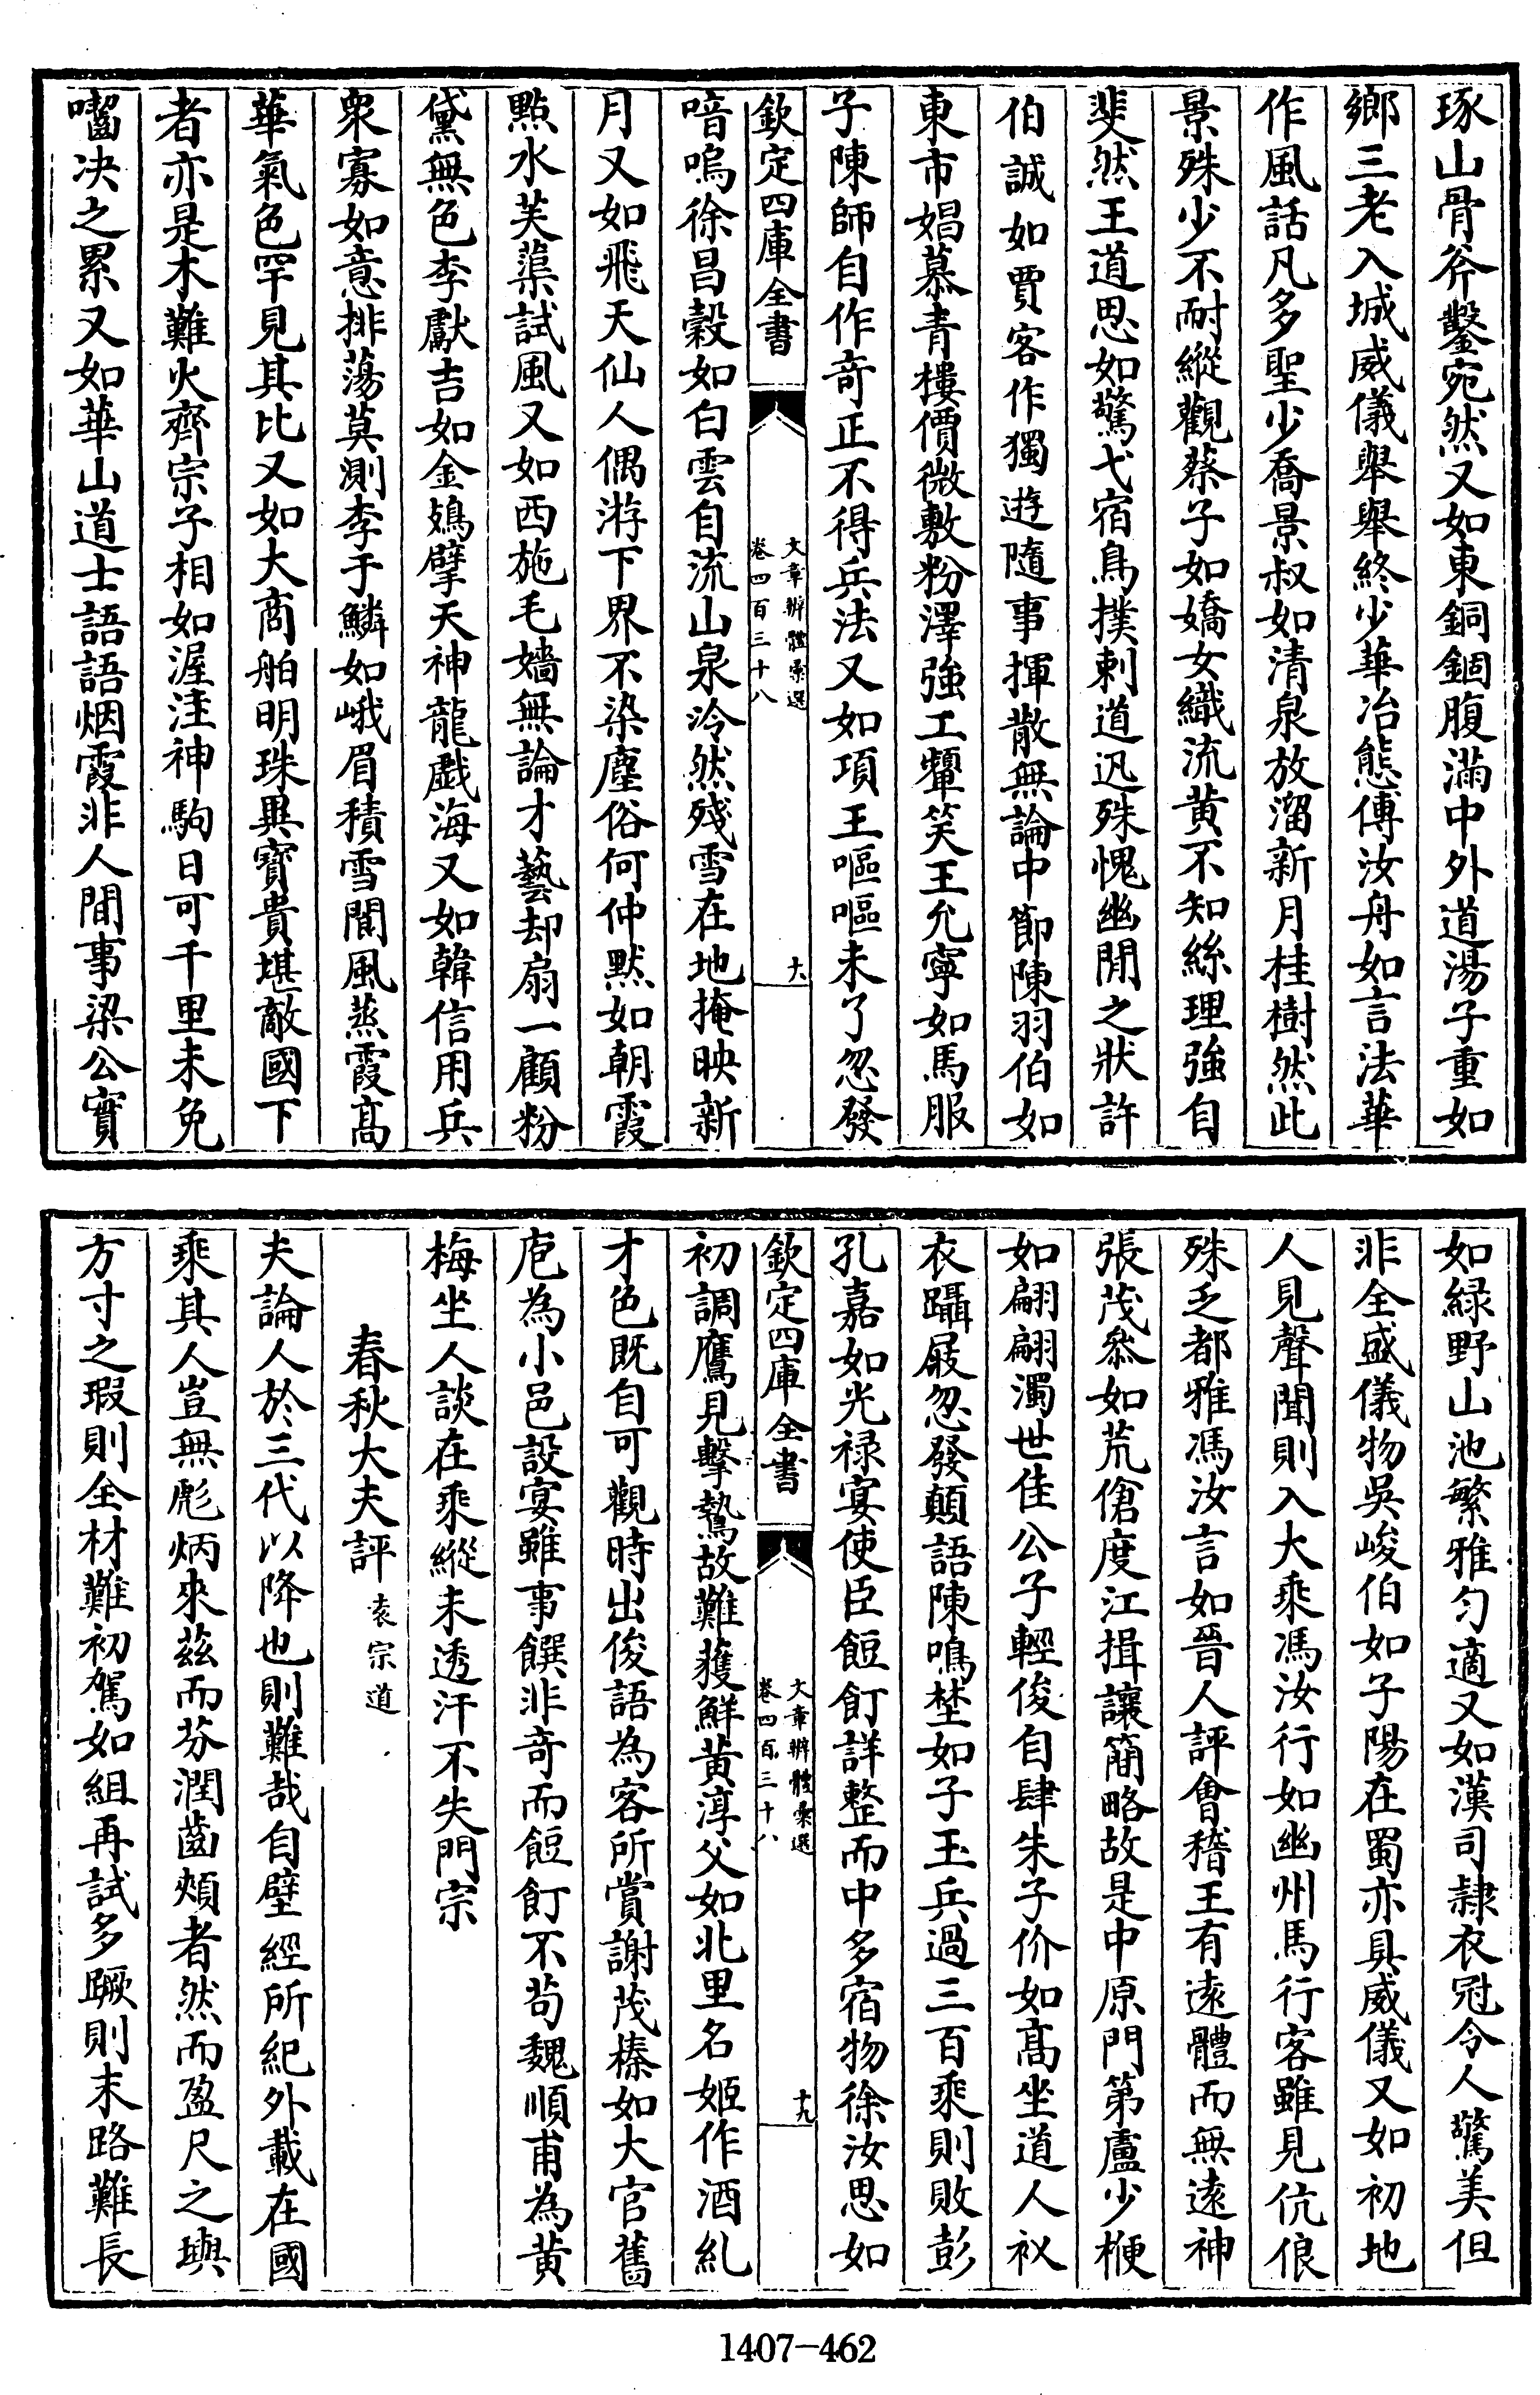 琢山骨斧鑿宛然又如東銅錮腹滿中外道湯子重如
鄉三老入城威儀舉舉終少華冶態傅汝舟如言法華
作風話凡多聖少喬景叔如清泉放溜新月桂樹然此
景殊少不耐縱觀蔡子如嬌女織流黄不知絲理強自
斐然王道思如驚弋宿鳥撲剌道迅殊愧幽閒之狀許
伯誠如賈客作獨遊隨事揮散無論中節陳羽伯如
東市娼慕青樓價微敷粉澤強工顰笑王允寧如馬服
子陳師自作奇正不得兵法又如項王嘔嘔未了忽發
欽定四庫全書
文章辨體彙選
卷四百三十八
十八
喑嗚徐昌穀如白雲自流山泉泠然殘雪在地掩映新
月又如飛天仙人偶游下界不染塵俗何仲默如朝霞
點水芙蕖試風又如西施毛嬙無論才藝却扇一顧粉
黛無色李獻吉如金鳷擘天神龍戲海又如韓信用兵
衆寡如意排蕩莫測李于鱗如峨眉積雪閬風蒸霞髙
華氣色罕見其比又如大商舶明珠異寳貴堪敵國下
者亦是木難火齊宗子相如渥洼神駒日可千里未免
囓决之累又如華山道士語語烟霞非人間事梁公實
如緑野山池繁雅勻適又如漢司隷衣冠令人驚美但
非全盛儀物吳峻伯如子陽在蜀亦具威儀又如初地
人見聲聞則入大乘馮汝行如幽州馬行客雖見伉俍
殊乏都雅馮汝言如晉人評會稽王有逺體而無逺神
張茂叅如荒傖度江揖讓簡略故是中原門第盧少楩
如翩翩濁世佳公子輕俊自肆朱子价如髙坐道人衩
衣躡屐忽發顛語陳鳴埜如子玉兵過三百乘則敗彭
孔嘉如光禄宴使臣餖飣詳整而中多宿物徐汝思如
欽定四庫全書
文章辨體彙選
卷四百三十八
十九
初調鷹見擊鷙故難獲鮮黄淳父如北里名姬作酒糺
才色既自可觀時出俊語為客所賞謝茂榛如大官舊
庖為小邑設宴雖事饌非奇而餖飣不苟魏順甫為黄
梅坐人談在乘縱未透汗不失門宗
春秋大夫評 袁宗道
夫論人於三代以降也則難哉自壁經所紀外載在國
乘其人豈無彪炳來茲而芬潤齒頰者然而盈尺之璵
方寸之瑕則全材難初駕如組再試多蹶則末路難長
1407-462